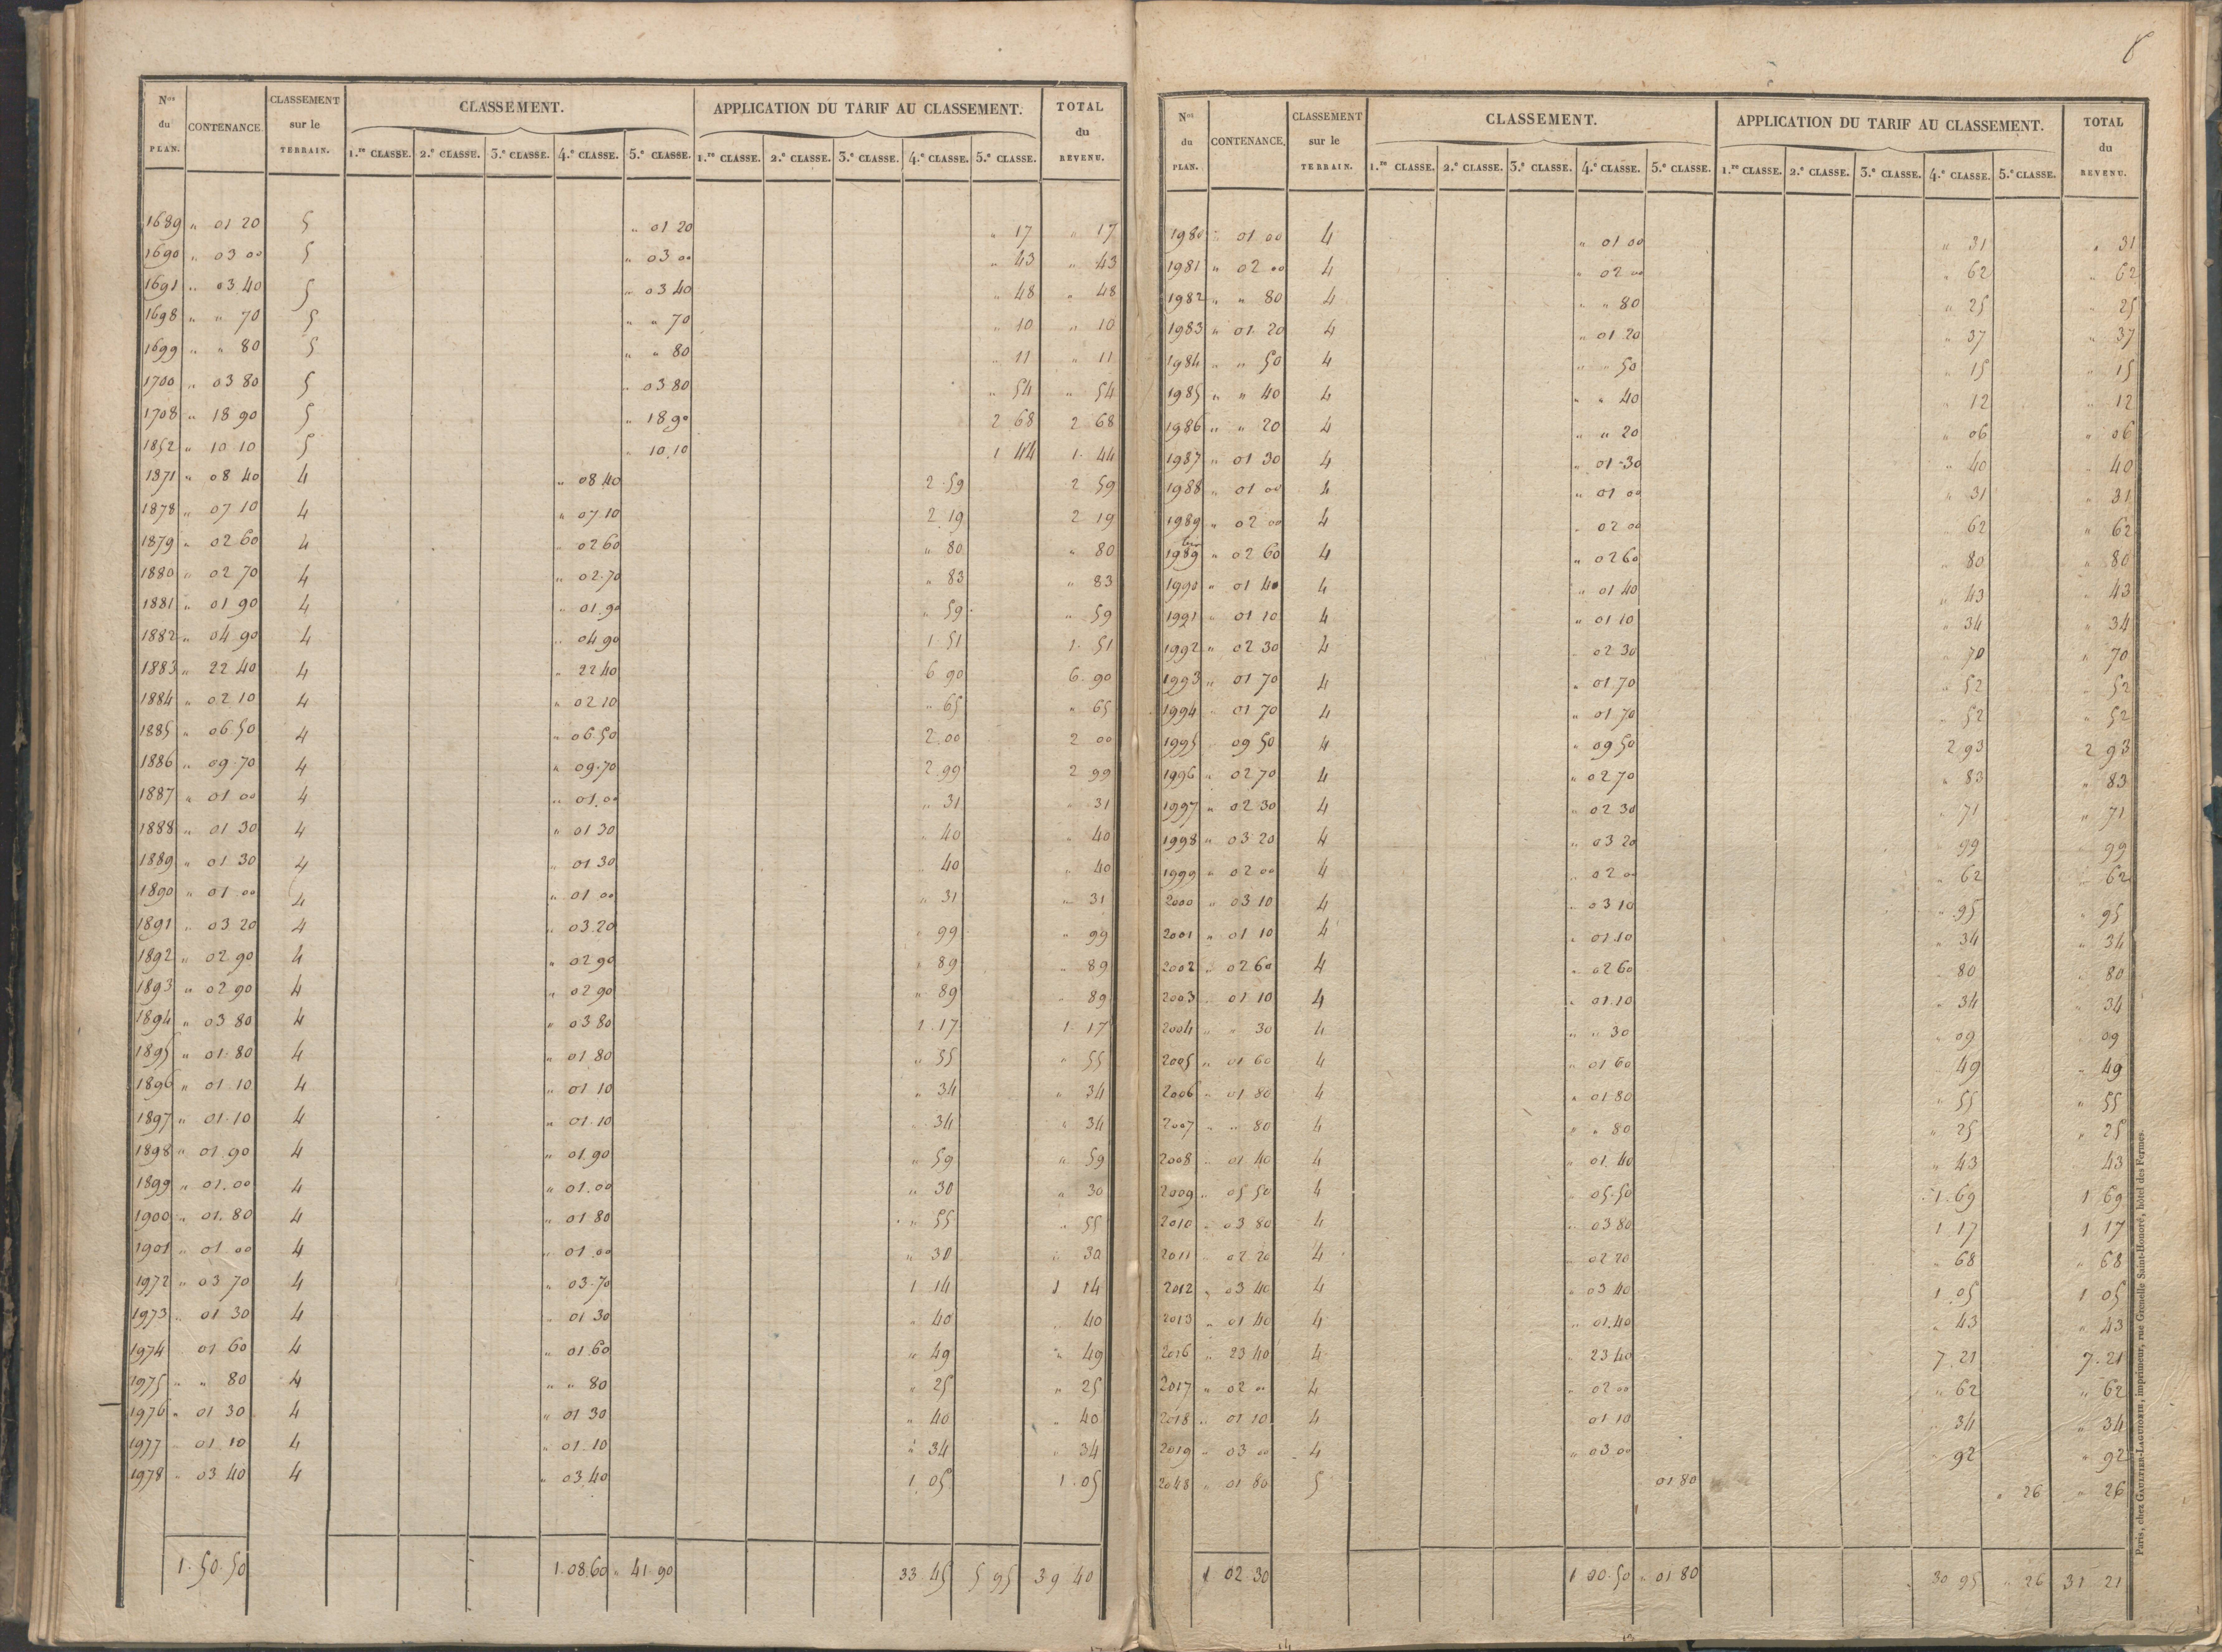 8
N.os du PLAN. CONTENANCE. CLASSEMENT sur le TERRAIN. CLASSEMENT. APPLICATION DU TARIF AU CLASSEMENT. TOTAL du REVENU.
1.re CLASSE. 2.e CLASSE. 3.e CLASSE. 4.e CLASSE. 5.e CLASSE. 1.re CLASSE. 2.e CLASSE. 3.e CLASSE. 4.e CLASSE. 5.e CLASSE.
1689 " 01 20 5 " 01 20 " 17 " 17
1690 " 03 00 5 " 03 00 " 43 " 43
1691 " 03 40 5 " 03 40 " 48 " 48
1698 " " 70 5 " " 70 " 10 " 10
1699 " " 80 5 " " 80 " 11 " 11
1700 " 03 80 5 " 03 80 " 54 " 54
1708 " 18 90 5 " 18 90 2 68 2 68
1852 " 10 10 5 " 10 10 1 44 1 44
1871 " 08 40 4 " 08 40 2 59 2 59
1878 " 07 10 4 " 07 10 2 19 2 19
1879 " 02 60 4 " 02 60 " 80 " 80
1880 " 02 70 4 " 02 70 " 83 " 83
1881 " 01 90 4 " 01 90 " 59 " 59
1882 " 04 90 4 " 04 90 1 51 1 51
1883 " 22 40 4 " 22 40 6 90 6 90
1884 " 02 10 4 " 02 10 " 65 " 65
1885 " 06 50 4 " 06 50 2 00 2 00
1886 " 09 70 4 " 09 70 2 99 2 99
1887 " 01 00 4 " 01 00 " 31 " 31
1888 " 01 30 4 " 01 30 " 40 " 40
1889 " 01 30 4 " 01 30 " 40 " 40
1890 " 01 00 4 " 01 00 " 31 " 31
1891 " 03 20 4 " 03 20 " 99 " 99
1892 " 02 90 4 " 02 90 " 89 " 89
1893 " 02 90 4 " 02 90 " 89 " 89
1894 " 03 80 4 " 03 80 1 17 1 17
1895 " 01 80 4 " 01 80 " 55 " 55
1896 " 01 10 4 " 01 10 " 34 " 34
1897 " 01 10 4 " 01 10 " 34 " 34
1898 " 01 90 4 " 01 90 " 59 " 59
1899 " 01 00 4 " 01 00 " 30 " 30
1900 " 01 80 4 " 01 80 " 55 " 55
1901 " 01 00 4 " 01 00 " 30 " 30
1972 " 03 70 4 " 03 70 1 14 1 14
1973 " 01 30 4 " 01 30 " 40 " 40
1974 " 01 60 4 " 01 60 " 49 " 49
1975 " " 80 4 " " 80 " 25 " 25
1976 " 01 30 4 " 01 30 " 40 " 40
1977 " 01 10 4 " 01 10 " 34 " 34
1978 " 03 40 4 " 03 40 1 05 1 05
1 50 50 1 08 60 " 41 90 33 45 5 95 39 40
N.os du PLAN. CONTENANCE. CLASSEMENT sur le TERRAIN. CLASSEMENT. APPLICATION DU TARIF AU CLASSEMENT. TOTAL du REVENU.
1.re CLASSE. 2.e CLASSE. 3.e CLASSE. 4.e CLASSE. 5.e CLASSE. 1.re CLASSE. 2.e CLASSE. 3.e CLASSE. 4.e CLASSE. 5.e CLASSE.
1980 " 01 00 4 " 01 00 " 31 " 31
1981 " 02 00 4 " 02 00 " 62 " 62
1982 " " 80 4 " " 80 " 25 " 25
1983 " 01 20 4 " 01 20 " 37 " 37
1984 " " 50 4 " " 50 " 15 " 15
1985 " " 40 4 " " 40 " 12 " 12
1986 " " 20 4 " " 20 " 06 " 06
1987 " 01 30 4 " 01 30 " 40 " 40
1988 " 01 00 4 " 01 00 " 31 " 31
1989 " 02 00 4 " 02 00 " 62 " 62
1989 bis " 02 60 4 " 02 60 " 80 " 80
1990 " 01 40 4 " 01 40 " 43 " 43
1991 " 01 10 4 " 01 10 " 34 " 34
1992 " 02 30 4 " 02 30 " 70 " 70
1993 " 01 70 4 " 01 70 " 52 " 52
1994 " 01 70 4 " 01 70 " 52 " 52
1995 " 09 50 4 " 09 50 2 93 2 93
1996 " 02 70 4 " 02 70 " 83 " 83
1997 " 02 30 4 " 02 30 " 71 " 71
1998 " 03 20 4 " 03 20 " 99 " 99
1999 " 02 00 4 " 02 00 " 62 " 62
2000 " 03 10 4 " 03 10 " 95 " 95
2001 " 01 10 4 " 01 10 " 34 " 34
2002 " 02 60 4 " 02 60 " 80 " 80
2003 " 01 10 4 " 01 10 " 34 " 34
2004 " " 30 4 " " 30 " 09 " 09
2005 " 01 60 4 " 01 60 " 49 " 49
2006 " 01 80 4 " 01 80 " 55 " 55
2007 " " 80 4 " " 80 " 25 " 25
2008 " 01 40 4 " 01 40 " 43 " 43
2009 " 05 50 4 " 05 50 1 69 1 69
2010 " 03 80 4 " 03 80 1 17 1 17
2011 " 02 20 4 " 02 20 " 68 " 68
2012 " 03 40 4 " 03 40 1 05 1 05
2013 " 01 40 4 " 01 40 " 43 " 43
2016 " 23 40 4 " 23 40 7 21 7 21
2017 " 02 00 4 " 02 00 " 62 " 62
2018 " 01 10 4 " 01 10 " 34 " 34
2019 " 03 00 4 " 03 00 " 92 " 92
2048 " 01 80 5 " 01 80 " 26 " 26
1 02 30 1 00 50 " 01 80 30 95 " 26 31 21
Paris, chez GAULTIER-LAGUIONIE, imprimeur, rue Grenelle Saint-Honoré, hôtel des Fermes.